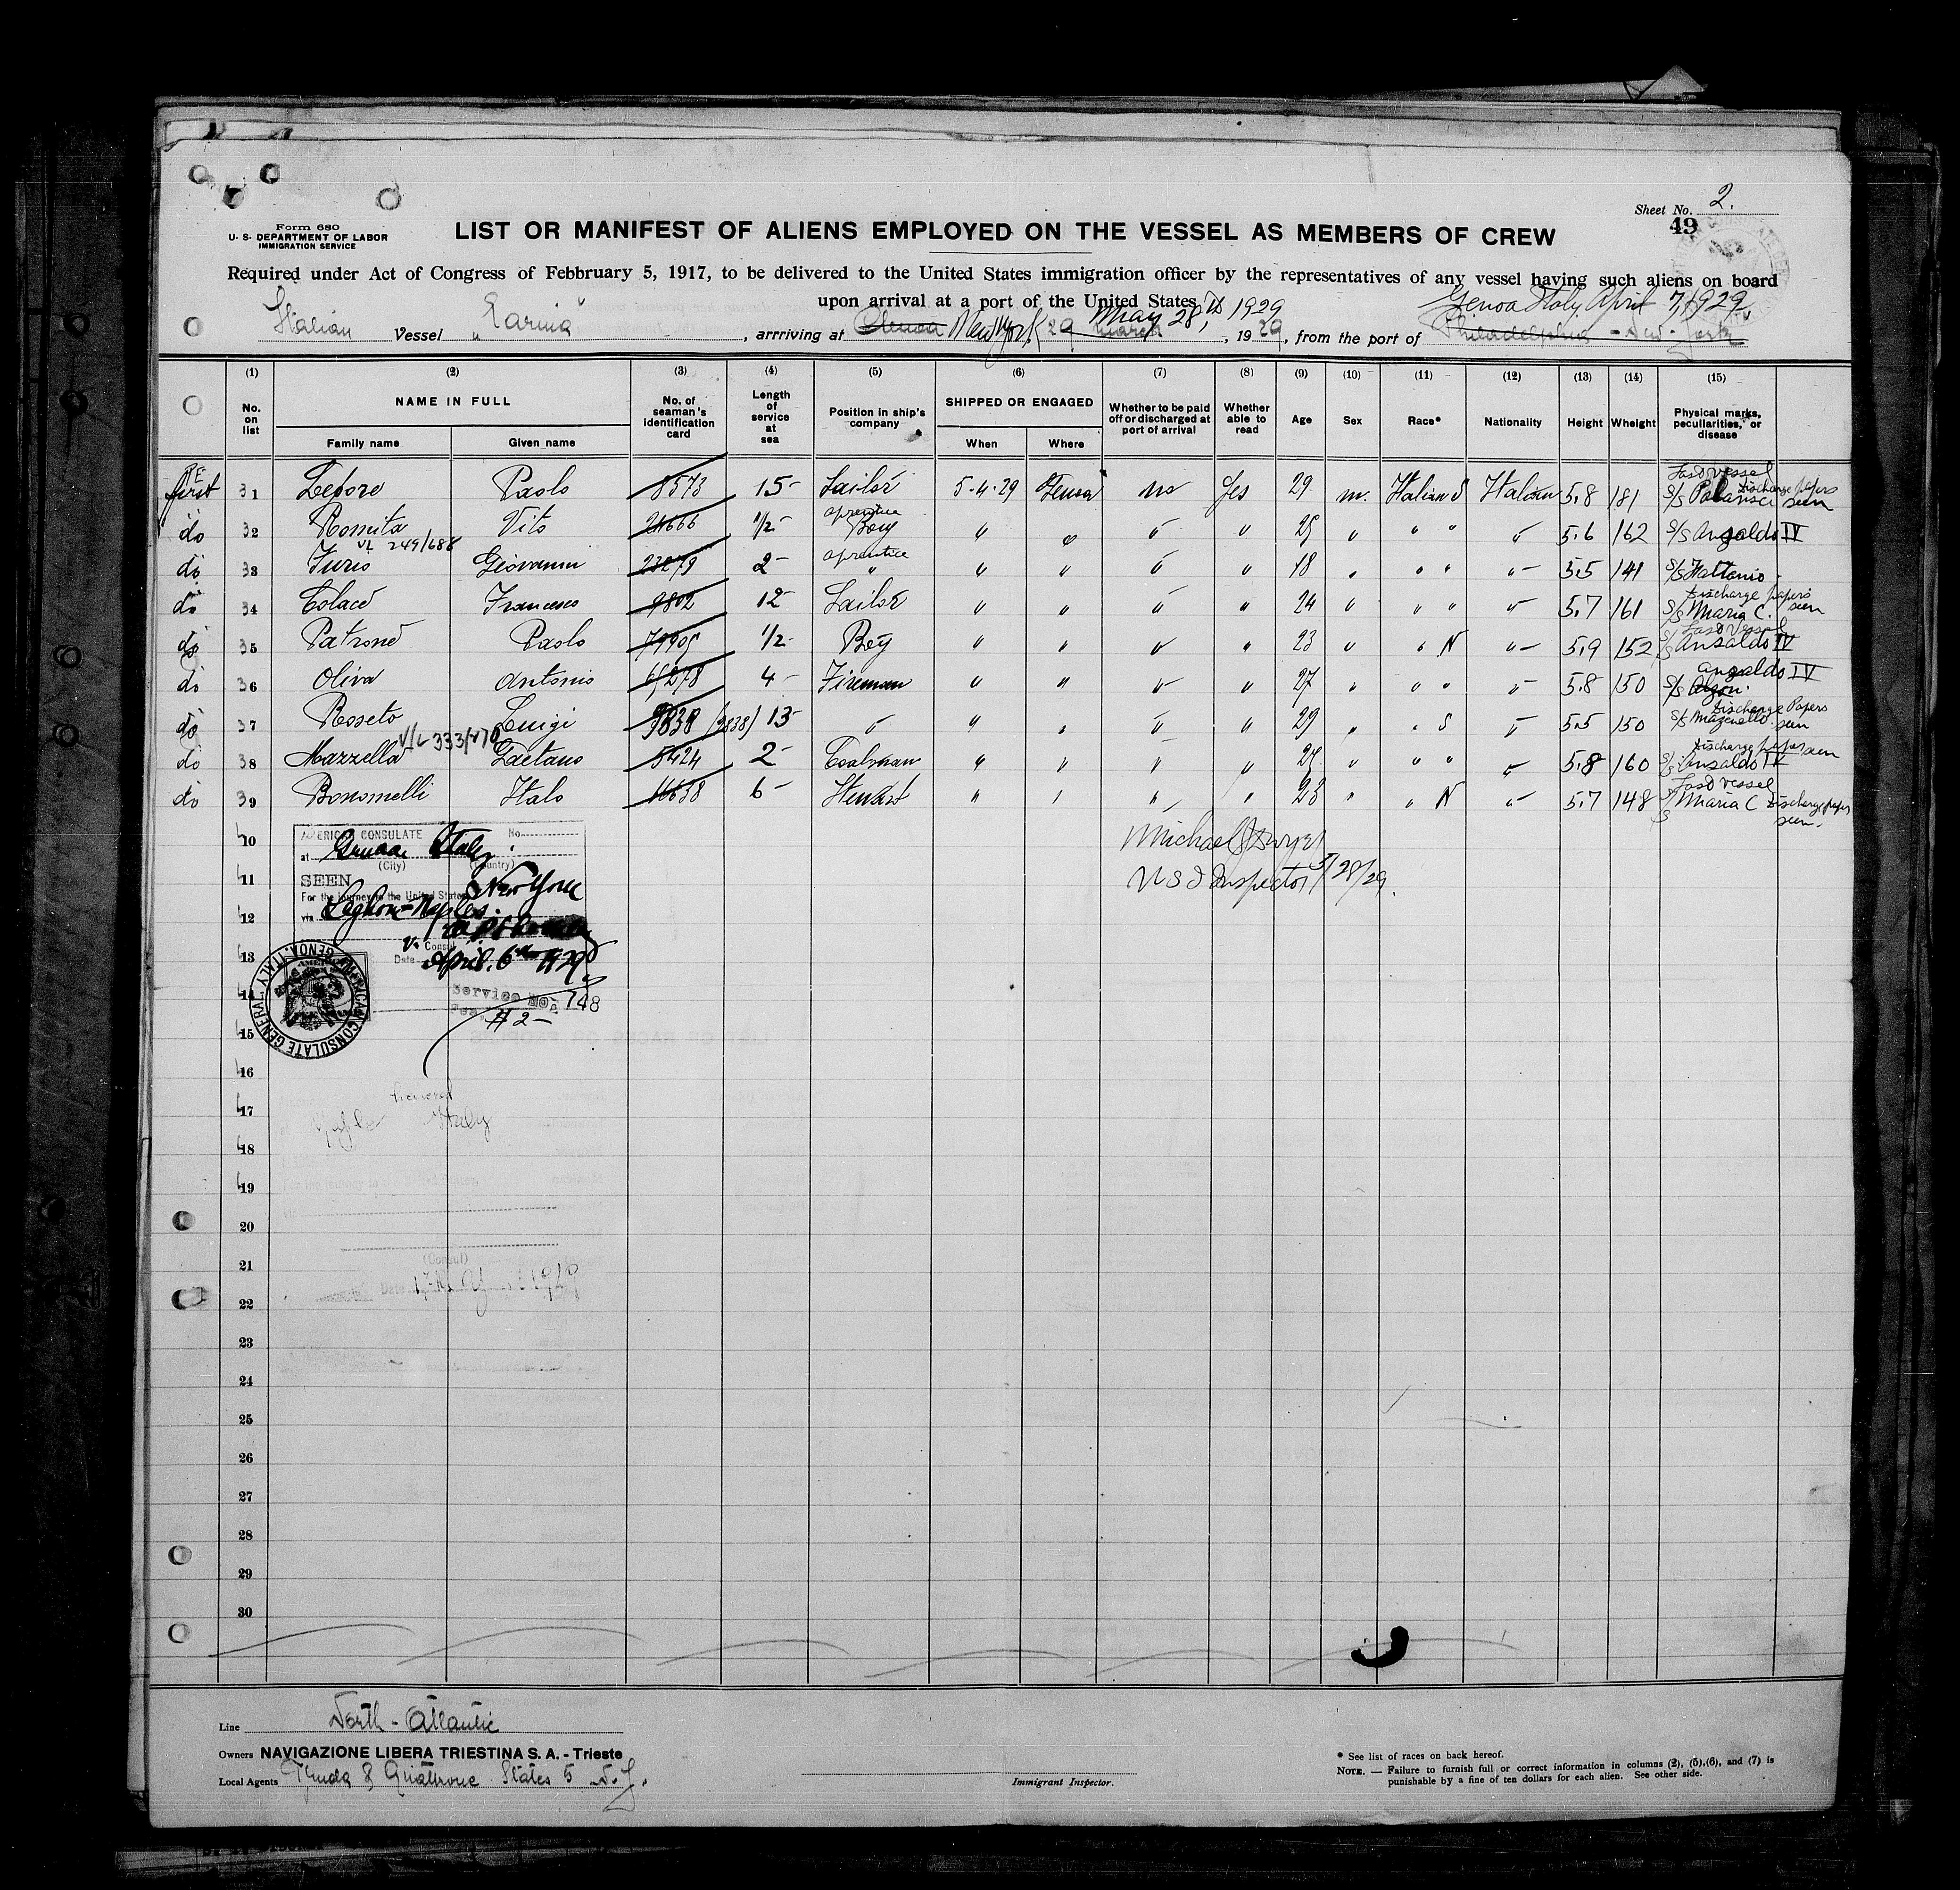 Sheet No. 2.
49
Form 680
U. S. DEPARTMENT OF LABOR
IMMIGRATION SERVICE
LIST OR MANIFEST OF ALIENS EMPLOYED ON THE VESSEL AS MEMBERS OF CREW
Required under Act of Congress of Febbruary 5, 1917, to be delivered to the United States immigration officer by the representatives of any vessel having such aliens on board
upon arrival at a port of the United States
May 28, 1929 Genoa Italy April 7, 1929
Italian Vessel , arrriving at Genoa New York 29 March , 19 29 , from the port of Philadelphia - New-York
(1) (2) (3) (4) (5) (6) (7) (8) (9) (10) (11) (12) (13) (14) (15)
No. on list
NAME IN FULL
Family name Given name
No. of seaman's identification card
Length of service at sea
Position in ship's company
SHIPPED OR ENGAGED
When Where
Whether to be paid off or discharged at port of arrival
Whether able to read
Age Sex Race* Nationality Height Wheight
Physical marks, peculiarities, or disease
first 31 Lepore Paolo 8573 15- Sailor 5-4-29 Genoa no Yes 29 m. Italian S Italian 5.8 181 Last vessel S/S Discharge papers seen
do 32 Romita Vito 24666 1/2- Boy " " " " 25 " " " " 5.6 162 S/S Ansaldo IV
VL 249/688
do 33 Giovanni 23279 2- " " " " " 18 " " " " 5.5 141 S/S
do 34 Colace Francesco 9802 12- Sailor " " " " 24 " " " " 5.7 161 S/S Maria C. Discharge papers seen
do 35 Patrone Paolo 79905 1/2- Boy " " " " 23 " " N " 5.9 152 Last Vessel S/S Ansaldo IV
do 36 Oliva Antonio 65278 4- Fireman " " " " 27 " " " " 5.8 150 S/S Ansaldo IV
do 37 Roseto Luigi 9838 (9838) 13- " " " " " 29 " " S " 5.5 150 S/S Discharge Papers seen
V/L 333/470
do 38 Mazzella Gaetano 5424 2- Coalman " " " " 25 " " " " 5.8 160 S/S Ansaldo IV Discharge papers seen
do 39 Bonomelli Italo 16638 6- Stewart " " " " 23 " " N " 5.7 148 Last vessel S/S Maria C Discharge papers seen.
10
11
12
13
14
15
16
17
18
19
20
21
22
23
24
25
26
27
28
29
30
AMERICAN CONSULATE No.
at Genoa Italy.
(City) (Country)
SEEN
For the journey to the United States New York
via Leghorn-Naples.
V. Consul
Date April. 6th 1929
Service No. 748
Fee #2-
AMERICAN CONSULATE GENERAL. GENOA, ITALY
Michael J Dwyer
U S I Inspector 5/28/29.
Italy
(Consul)
Date 1929
Line North-Atlantic
Owners NAVIGAZIONE LIBERA TRIESTINA S. A. - Trieste
Local Agents
Immigrant Inspector.
* See list of races on back hereof.
NOTE. — Failure to furnish full or correct information in columns (2), (5),(6), and (7) is
punishable by a fine of ten dollars for each alien. See other side.